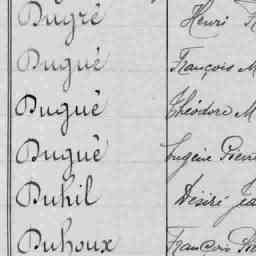 Dugré Henri
Dugué François M
Dugué Théodore M
Dugué Eugène Pierre
Duhil Désiré Jea
Duhoux François